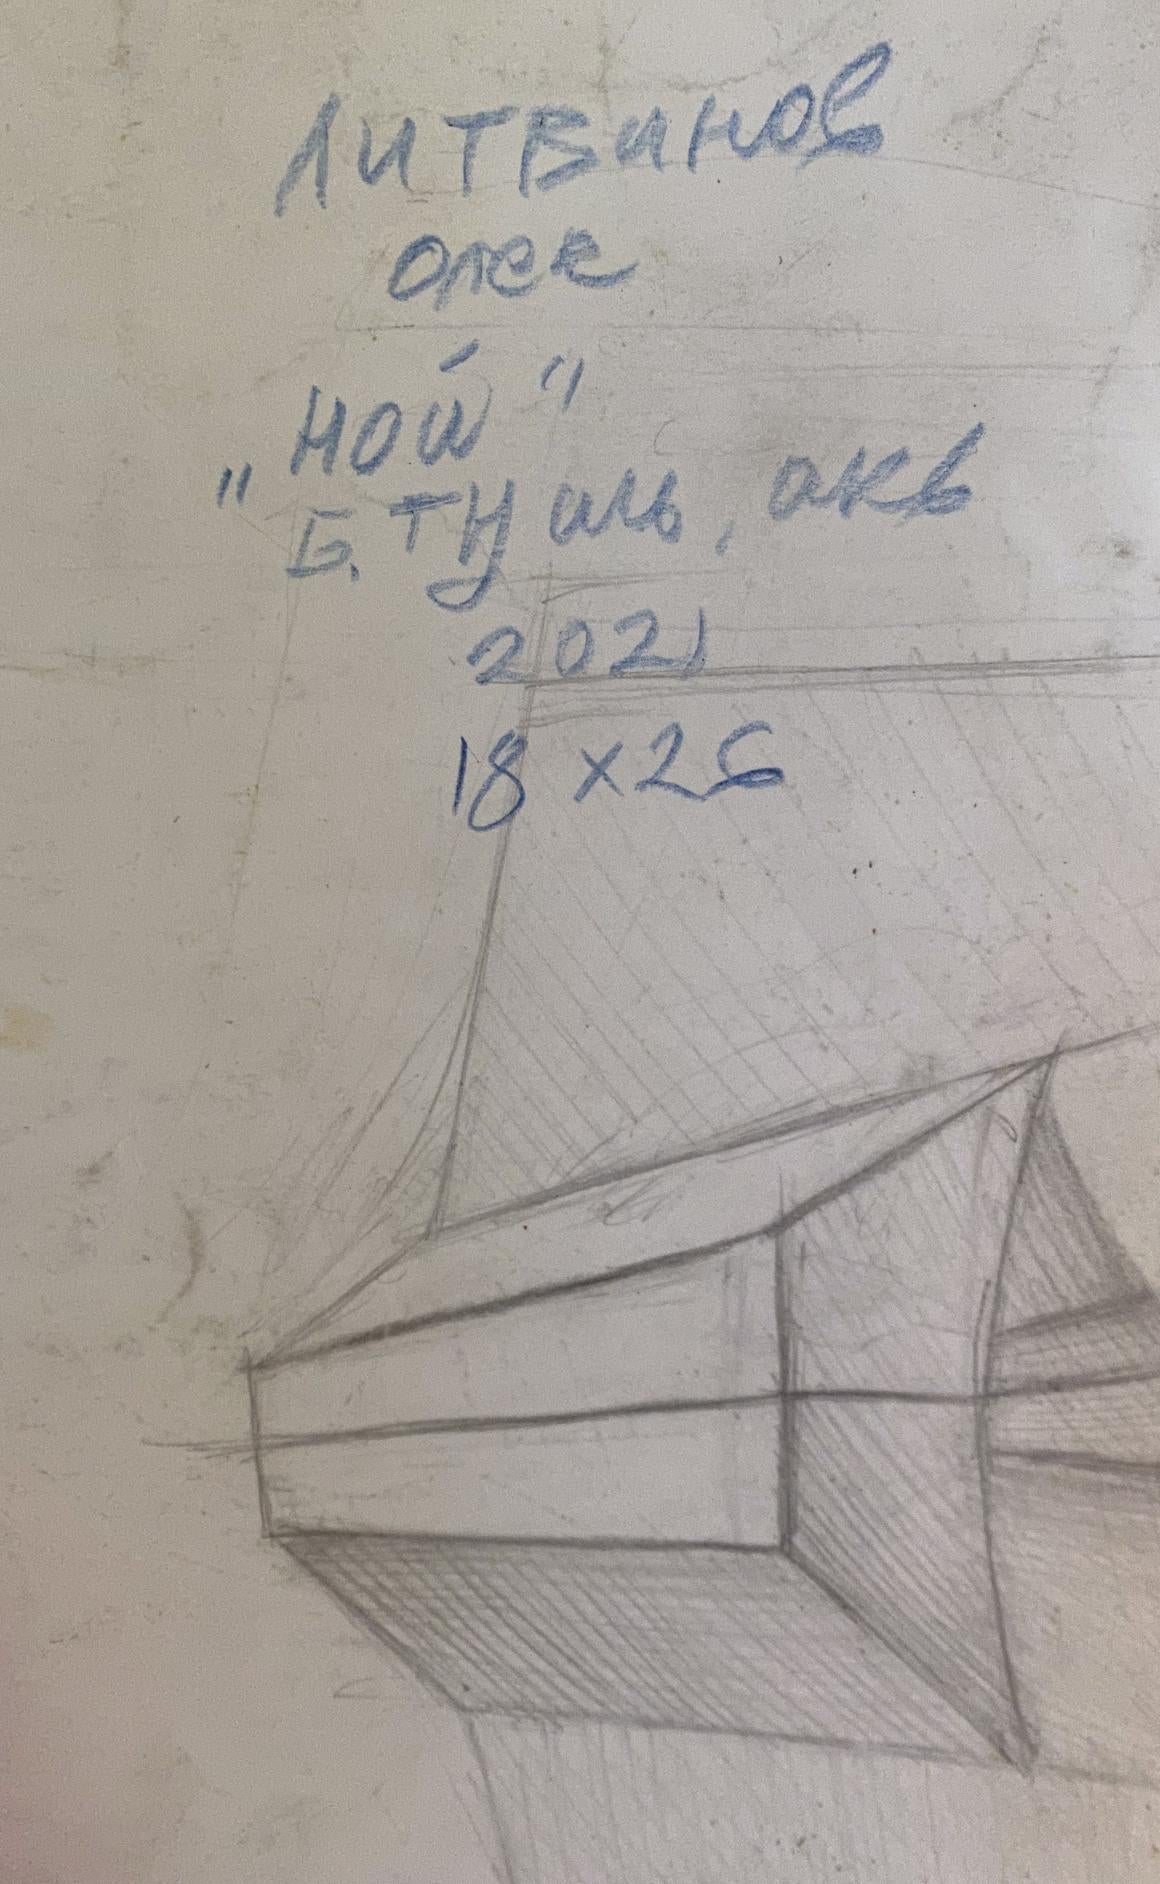 Литвинов
Олек
„Ной"
Б. туш, акв
2021
18 x 26